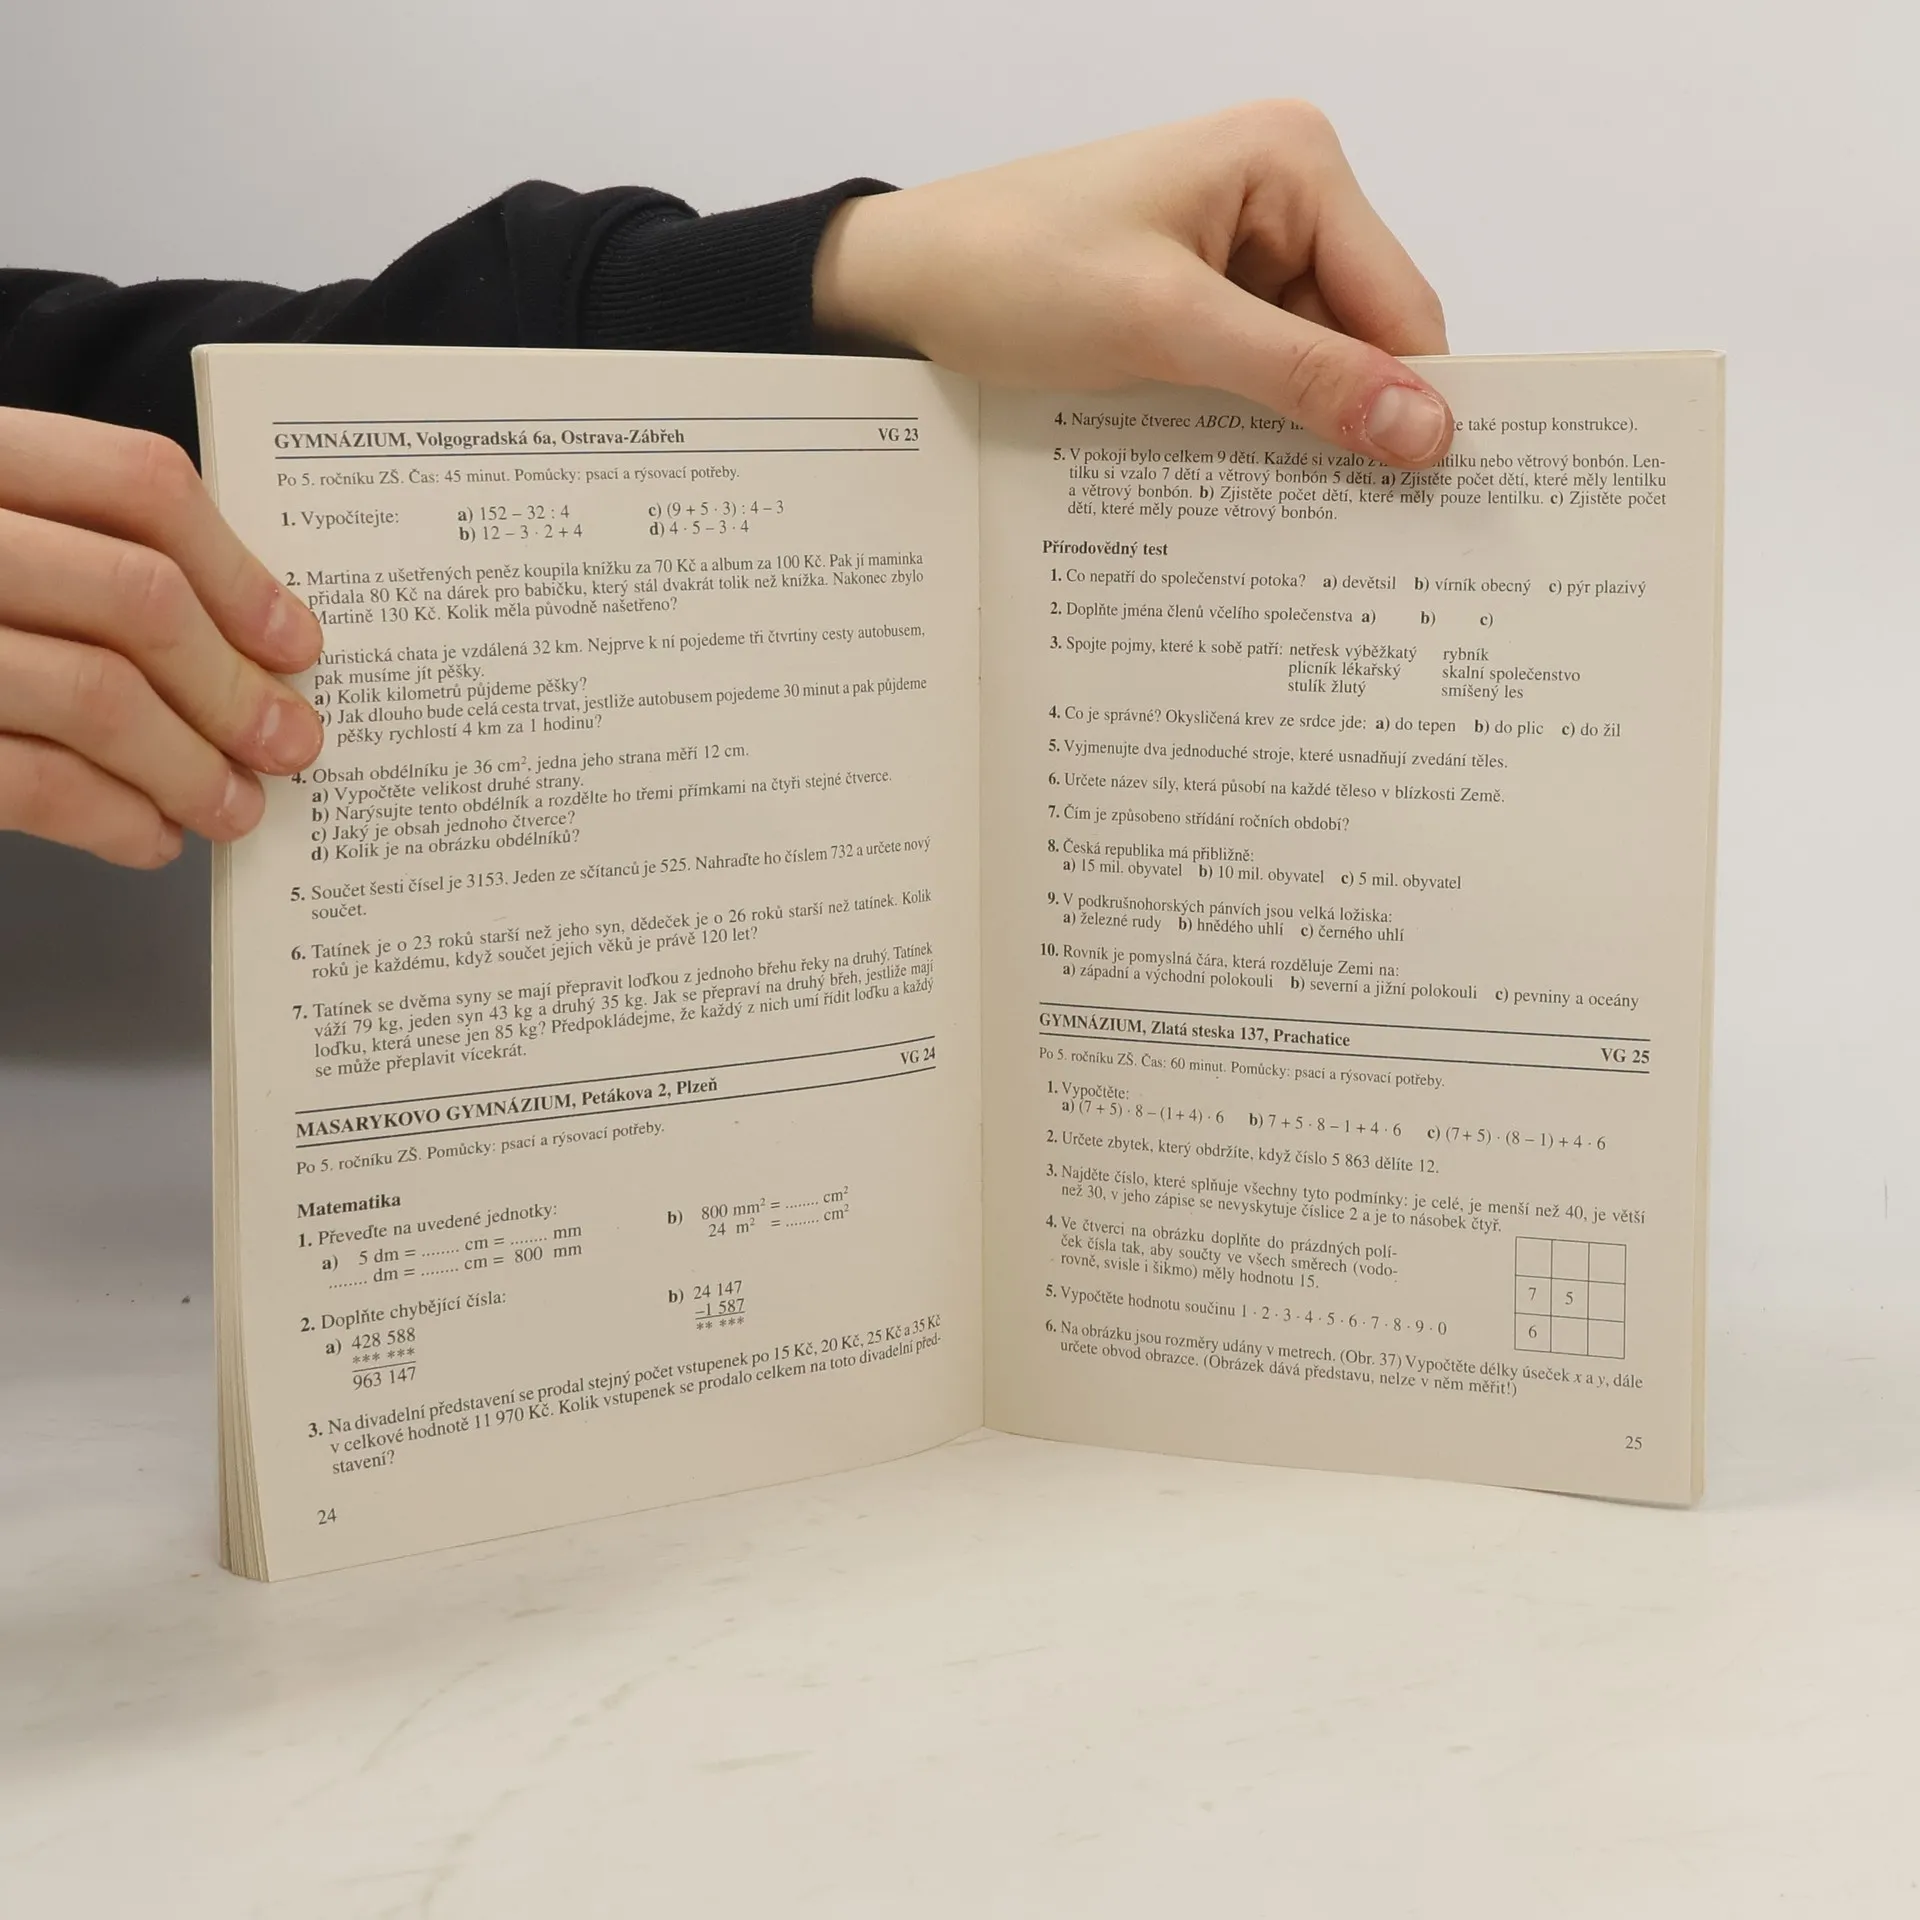 GYMNÁZIUM, Volgogradská 6a, Ostrava-Zábřeh VG 23
Po 5. ročníku ZŠ. Čas: 45 minut. Pomůcky: psací a rýsovací potřeby.
1. Vypočítejte: a) 152 – 32 : 4 c) (9 + 5 · 3) : 4 – 3
b) 12 – 3 · 2 + 4 d) 4 · 5 – 3 · 4
2. Martina z ušetřených peněz koupila knížku za 70 Kč a album za 100 Kč. Pak jí maminka
přidala 80 Kč na dárek pro babičku, který stál dvakrát tolik než knížka. Nakonec zbylo
Martině 130 Kč. Kolik měla původně našetřeno?
Turistická chata je vzdálená 32 km. Nejprve k ní pojedeme tři čtvrtiny cesty autobusem,
pak musíme jít pěšky.
a) Kolik kilometrů půjdeme pěšky?
b) Jak dlouho bude celá cesta trvat, jestliže autobusem pojedeme 30 minut a pak půjdeme
pěšky rychlostí 4 km za 1 hodinu?
4. Obsah obdélníku je 36 cm², jedna jeho strana měří 12 cm.
a) Vypočtěte velikost druhé strany.
b) Narýsujte tento obdélník a rozdělte ho třemi přímkami na čtyři stejné čtverce.
c) Jaký je obsah jednoho čtverce?
d) Kolik je na obrázku obdélníků?
5. Součet šesti čísel je 3153. Jeden ze sčítanců je 525. Nahraďte ho číslem 732 a určete nový
součet.
6. Tatínek je o 23 roků starší než jeho syn, dědeček je o 26 roků starší než tatínek. Kolik
roků je každému, když součet jejich věků je právě 120 let?
7. Tatínek se dvěma syny se mají přepravit loďkou z jednoho břehu řeky na druhý. Tatínek
váží 79 kg, jeden syn 43 kg a druhý 35 kg. Jak se přepraví na druhý břeh, jestliže mají
loďku, která unese jen 85 kg? Předpokládejme, že každý z nich umí řídit loďku a každý
se může přeplavit vícekrát.
MASARYKOVO GYMNÁZIUM, Petákova 2, Plzeň VG 24
Po 5. ročníku ZŠ. Pomůcky: psací a rýsovací potřeby.
Matematika
1. Převeďte na uvedené jednotky:
a) 5 dm = ........ cm = ........ mm b) 800 mm² = ........ cm²
........ dm = ........ cm = 800 mm 24 m² = ........ cm²
2. Doplňte chybějící čísla:
a) 428 588 b) 24 147
*** *** –1 587
963 147 ** ***
3. Na divadelní představení se prodal stejný počet vstupenek po 15 Kč, 20 Kč, 25 Kč a 35 Kč
v celkové hodnotě 11 970 Kč. Kolik vstupenek se prodalo celkem na toto divadelní před-
stavení?
24
4. Narýsujte čtverec ABCD, který také postup konstrukce).
5. V pokoji bylo celkem 9 dětí. Každé si vzalo nebo větrový bonbón. Len-
tilku si vzalo 7 dětí a větrový bonbón 5 dětí. a) Zjistěte počet dětí, které měly lentilku
a větrový bonbón. b) Zjistěte počet dětí, které měly pouze lentilku. c) Zjistěte počet
dětí, které měly pouze větrový bonbón.
Přírodovědný test
1. Co nepatří do společenství potoka? a) devětsil b) vírník obecný c) pýr plazivý
2. Doplňte jména členů včelího společenstva a) b) c)
3. Spojte pojmy, které k sobě patří: netřesk výběžkatý rybník
plicník lékařský skalní společenstvo
stulík žlutý smíšený les
4. Co je správné? Okysličená krev ze srdce jde: a) do tepen b) do plic c) do žil
5. Vyjmenujte dva jednoduché stroje, které usnadňují zvedání těles.
6. Určete název síly, která působí na každé těleso v blízkosti Země.
7. Čím je způsobeno střídání ročních období?
8. Česká republika má přibližně:
a) 15 mil. obyvatel b) 10 mil. obyvatel c) 5 mil. obyvatel
9. V podkrušnohorských pánvích jsou velká ložiska:
a) železné rudy b) hnědého uhlí c) černého uhlí
10. Rovník je pomyslná čára, která rozděluje Zemi na:
a) západní a východní polokouli b) severní a jižní polokouli c) pevniny a oceány
GYMNÁZIUM, Zlatá steska 137, Prachatice VG 25
Po 5. ročníku ZŠ. Čas: 60 minut. Pomůcky: psací a rýsovací potřeby.
1. Vypočtěte:
a) (7 + 5) · 8 – (1 + 4) · 6 b) 7 + 5 · 8 – 1 + 4 · 6 c) (7 + 5) · (8 – 1) + 4 · 6
2. Určete zbytek, který obdržíte, když číslo 5 863 dělíte 12.
3. Najděte číslo, které splňuje všechny tyto podmínky: je celé, je menší než 40, je větší
než 30, v jeho zápise se nevyskytuje číslice 2 a je to násobek čtyř.
4. Ve čtverci na obrázku doplňte do prázdných polí-
ček čísla tak, aby součty ve všech směrech (vodo-
rovně, svisle i šikmo) měly hodnotu 15.
7 5
6
5. Vypočtěte hodnotu součinu 1 · 2 · 3 · 4 · 5 · 6 · 7 · 8 · 9 · 0
6. Na obrázku jsou rozměry udány v metrech. (Obr. 37) Vypočtěte délky úseček x a y, dále
určete obvod obrazce. (Obrázek dává představu, nelze v něm měřit!)
25